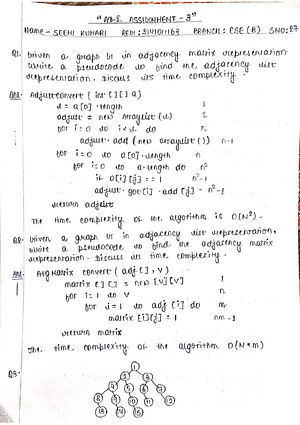 "AD-S. ASSIGNMENT - 3"
Name - SEEMI KUMARI REDI: 314101163 BRANCH: CSE (A) SNO: 27
Q1. Given a graph G in adjacency matrix representation
write a pseudocode to find the adjacency list
representation. Discuss its time complexity.
Ans. AdjustConvert ( int [ ] [ ] a )
l = a[0] . length 1
adjust = new ArrayList (l) 1
for i = 0 to i < l do n
adjust . add ( new arraylist ( ) ) n-1
for i = 0 to a[0] . length n
for j = 0 to a.length do n²
if a[i][j] == 1 n²-1
adjust . get(i) . add (j) - n²-1
return adjlist
The time complexity of the algorithm is O(N²).
Q2. Given a graph G in adjacency list representation,
write a pseudocode to find the adjacency matrix
representation. Discuss its time complexity.
Ans. AdjMatrix convert ( adj [ ] , V )
matrix [ ] [ ] = new [V] [V] 1
for i = 1 to V n
for j = 1 to adj [i] do m
matrix [i] [j] = 1 nm - 1
return matrix
The time complexity of the algorithm O(N*M)
Q3.
1
2 3